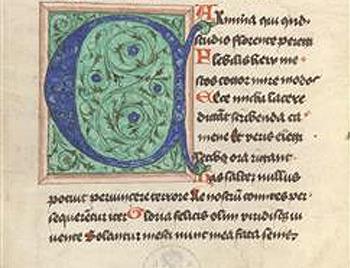 CArmina qui quõd
studio florente peregi
Flebilis heu me
stos cogor inire modos
Ecce michi lacere
dictãt scribenda ca
mene Et veris elegi
fletibꝫ ora rigant
Has saltem nullus
potuit pervincere terrore Ne nostrũ comites per
sequerẽtur iter Gloria felicis olim viridisqꝫ iu
vente Solantur mesti nunc mea fata senis